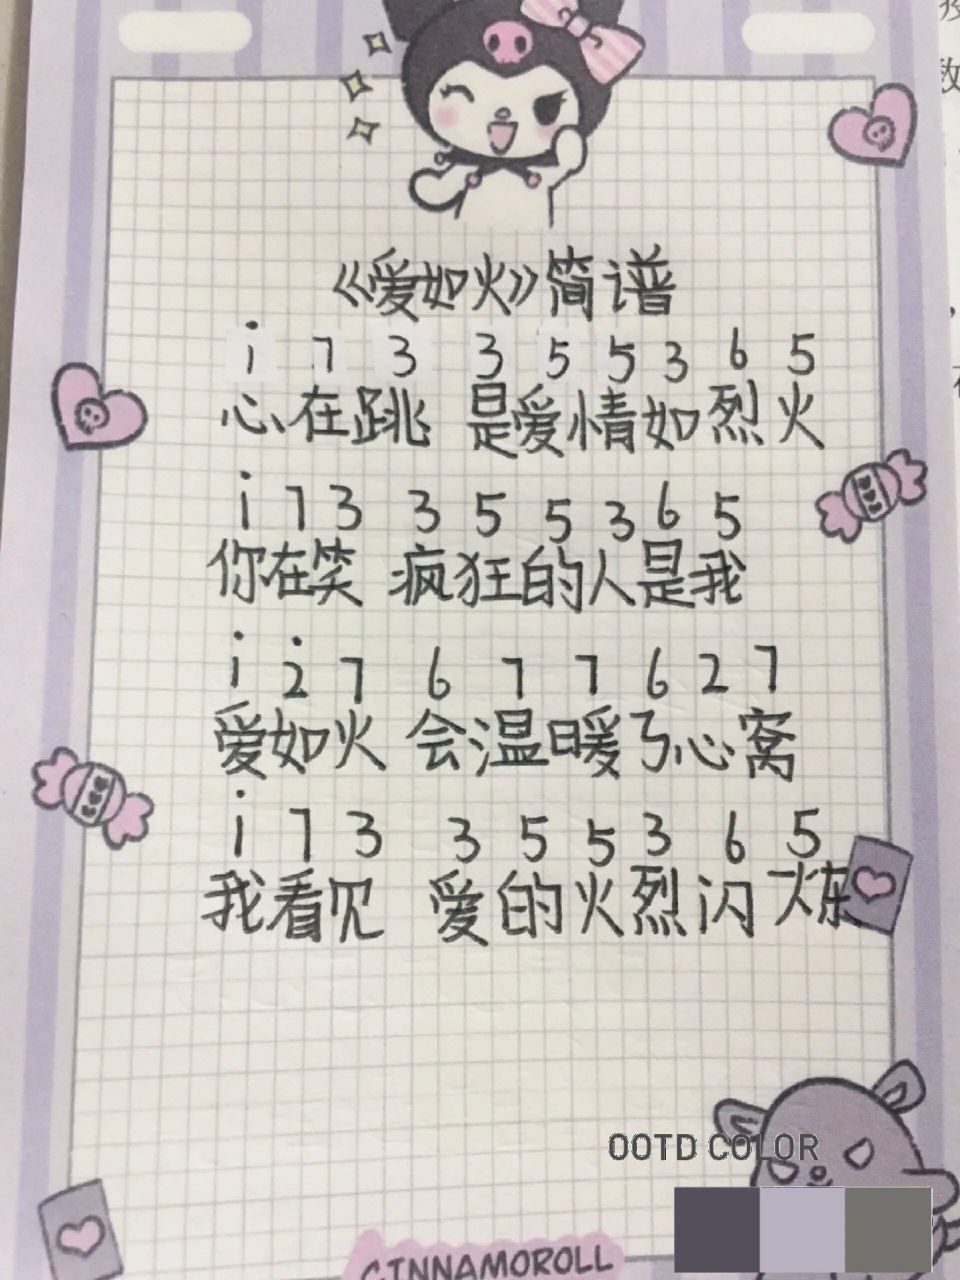 《爱如火》简谱
i̇ 7 3 3 5 5 3 6 5
心在跳 是爱情如烈火
i̇ 7 3 3 5 5 3 6 5
你在笑 疯狂的人是我
i̇ 2̇ 7 6 7 7 6 2 7
爱如火 会温暖了心窝
i̇ 7 3 3 5 5 3 6 5
我看见 爱的火烈闪炼
OOTD COLOR
CINNAMOROLL